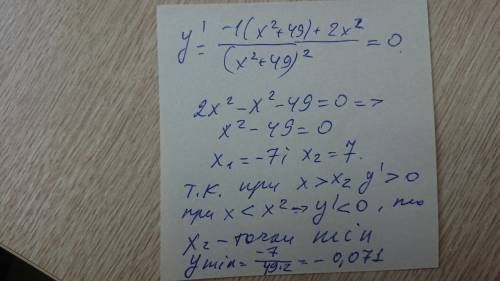 y' = (-1(x²+49)+2x²)/(x²+49)² = 0.
2x²-x²-49=0 =>
x²-49=0
x₁=-7; x₂=7.
т.к. при x>x₂ y'>0
при x<x² => y'<0, то
x₂-точка min
ymin= -7/49·2 = -0,071